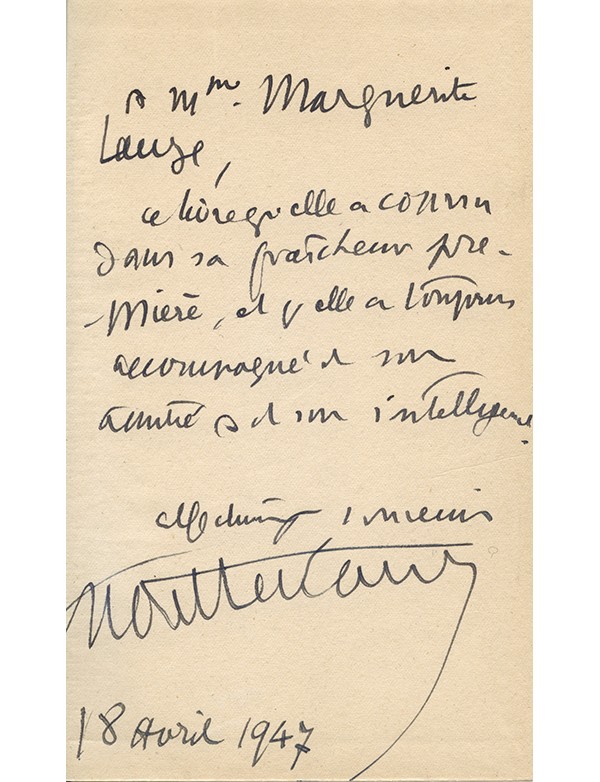 A Mme. Marguerite
Lauze,
ce livre qu'elle a connu
dans sa fraîcheur pre-
-mière, et qu'elle a toujours
accompagné de son
amitié & de son intelligence.
souvenir
Montherlant
18 Avril 1947